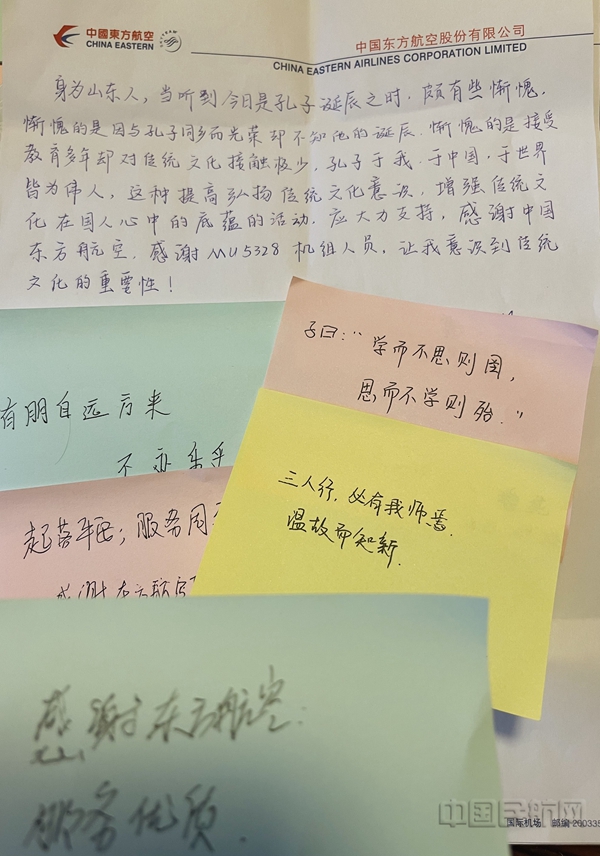 中國東方航空
CHINA EASTERN
中国东方航空股份有限公司
CHINA EASTERN AIRLINES CORPORATION LIMITED
身为山东人，当听到今日是孔子诞辰之时，颇有些惭愧，
惭愧的是因与孔子同乡而光荣却不知他的诞辰，惭愧的是接受
教育多年却对传统文化接触极少，孔子于我、于中国、于世界
皆为伟人，这种提高弘扬传统文化意识，增强传统文
化在国人心中的底蕴的活动，应大力支持，感谢中国
东方航空，感谢MU5328机组人员，让我意识到传统
文化的重要性！
子曰：“学而不思则罔，
思而不学则殆。”
有朋自远方来
不亦乐乎
三人行，必有我师焉
温故而知新.
起落平安；服务周
感谢东方航空
感谢东方航空：
服务优质.
国际机场 邮编 200335
中国民航网